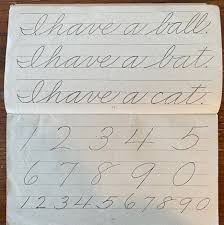 I have a ball.
I have a bat.
I have a cat.
1 2 3 4 5
6 7 8 9 0
1 2 3 4 5 6 7 8 9 0